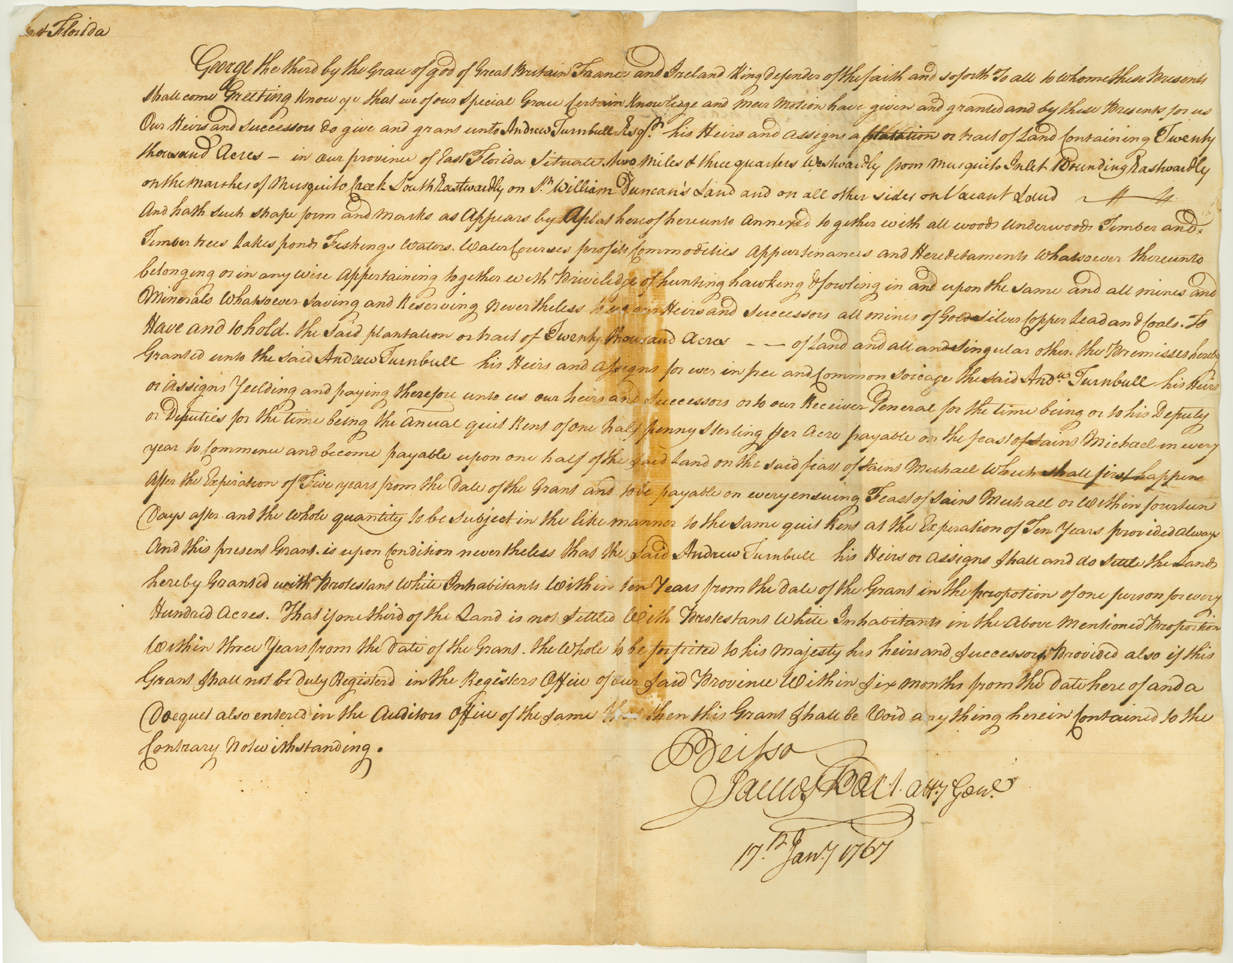 East Florida
George the third by the Grace of god of Great Britain France and Ireland King defender of the faith and so forth To all to whome these Presents
Shall come Greeting Know ye that we of our Special Grace Certain Knowledge and meer Motion have given and granted and by these Presents for us
Our Heirs and Successors do give and grant unto Andrew Turnbull Esqr. his Heirs and Assigns a platation or tract of Land Containing Twenty
thousand Acres – in our province of East Florida Situate two Miles & three quarters Westwardly from Musquito Inlet Bounding Eastwardly
on the Marshes of Musquito Creek South Eastwardly on Sr. William Duncan's Land and on all other sides on Vacant Land
And hath such shape form and Marks as Appears by A plat hereof hereunto Annexed together with all woods Underwoods Timber and
Timber trees Lakes ponds Fishings Waters Water Courses profits Commodities Appurtinances and Hereditaments Whatsoever thereunto
belonging or in any wise Appertaining together with Priviledge of hunting hawking & fowling in and upon the same and all mines and
Minerals Whatsoever Saving and Reserving Nevertheless to us our Heirs and Successors all mines of Gold Silver Copper Lead and Coals. To
Have and to hold the Said plantation or tract of Twenty thousand Acres – – of Land and all and Singular other the Premisses hereby
Granted unto the said Andrew Turnbull his Heirs and Assigns for ever in free and Common Soicage the said Andw. Turnbull his Heirs
or Assigns Yeelding and paying therefore unto us our heirs and Successors or to our Receiver General for the time being or to his Deputy
or Deputies for the time being the Annual quit Rent of one half penny Sterling per Acre payable on the feast of Saint Michael in every
year to Commence and become payable upon one half of the said Land on the said feast of Saint Michael Which shall first happen
After the Expiration of Five years from the Date of the Grant and to be payable on every ensuing Feast of Saint Michael or Within fourteen
Days after and the Whole quantity to be Subject in the like manner to the same quit Rent at the Expiration of Ten Years provided always
And this present Grant is upon Condition nevertheless that the Said Andrew Turnbull his Heirs or Assigns Shall and do Settle the Lands
hereby Granted with Protestant White Inhabitants Within ten Years from the date of the Grant in the propotion of one person for every
Hundred Acres. That if one third of the Land is not Settled With Protestant White Inhabitants in the Above Mentioned Proportion
Within three Years from the Date of the Grant. the Whole to be forfeited to his Majesty his heirs and Successors Provided also if this
Grant Shall not be duly Registerd in the Registers Office of our Said Province Within Six months from the Date here of and a
Docquet also entered in the Auditors Office of the Same then this Grant Shall be Void any thing herein Contained to the
Contrary Notwithstanding.
James Box Atty Genl.
17th. Jany 1767